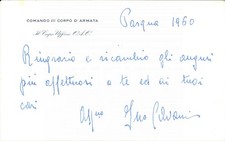 COMANDO VI CORPO D'ARMATA
Il Capo Ufficio
Pasqua 1960
Ringrazio e ricambio gli auguri
più affettuosi a te ed ai tuoi
cari
Aff.mo